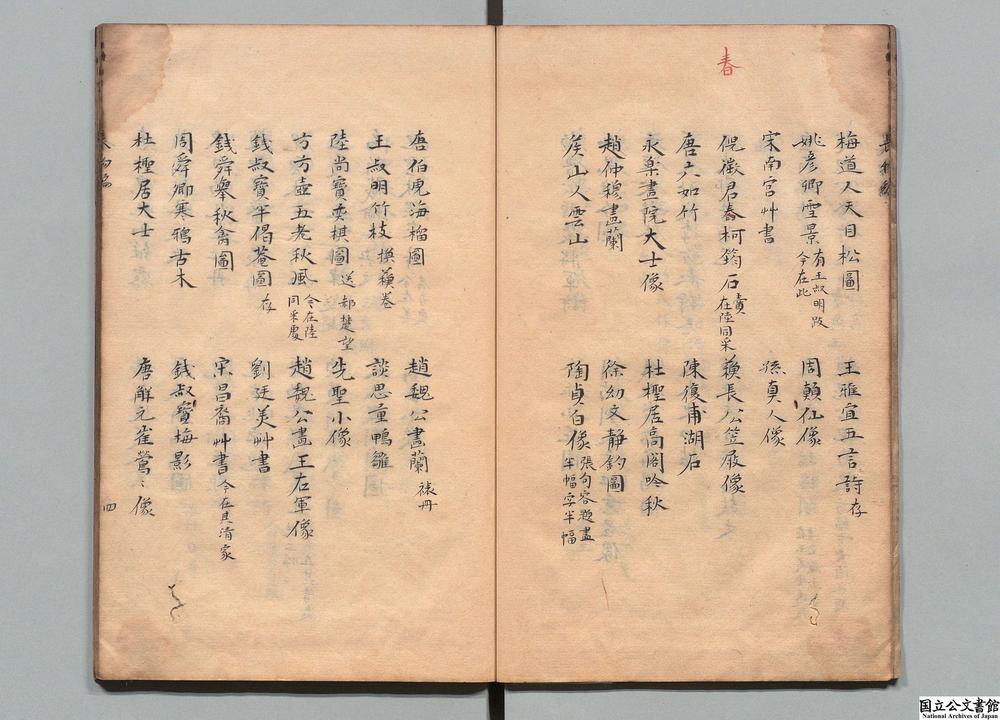 春
梅道人天目松圖 王雅宜五言詩存
姚彥卿雪景有王叔明跋今在此 周顛仙像
宋南宮艸書 孫真人像
倪徵君春柯筠石賣在陸同采 蘓長公笠屐像
唐六如竹 陳復甫湖石
永樂畫院大士像 杜檉居高閣吟秋
趙仲穆畫蘭 徐幼文靜釣圖
侯山人雲山 陶貞白像張句容題畫半幅字半幅
唐伯虎海榴圖 趙魏公畫蘭裱丹
王叔明竹枝換蘓卷 談思重鴨雛
陸尚寶奕棋圖送郝楚望 先聖小像
方方壺五老秋風今在陸同采處 趙魏公畫王右軍像
錢叔寶半偈菴圖存 劉廷美艸書
錢舜舉秋禽圖 宋昌裔艸書今在具清家
周舜卿寒鴉古木 錢叔寶梅影
杜檉居大士 唐解元崔鶯〻像
四
国立公文書館
National Archives of Japan